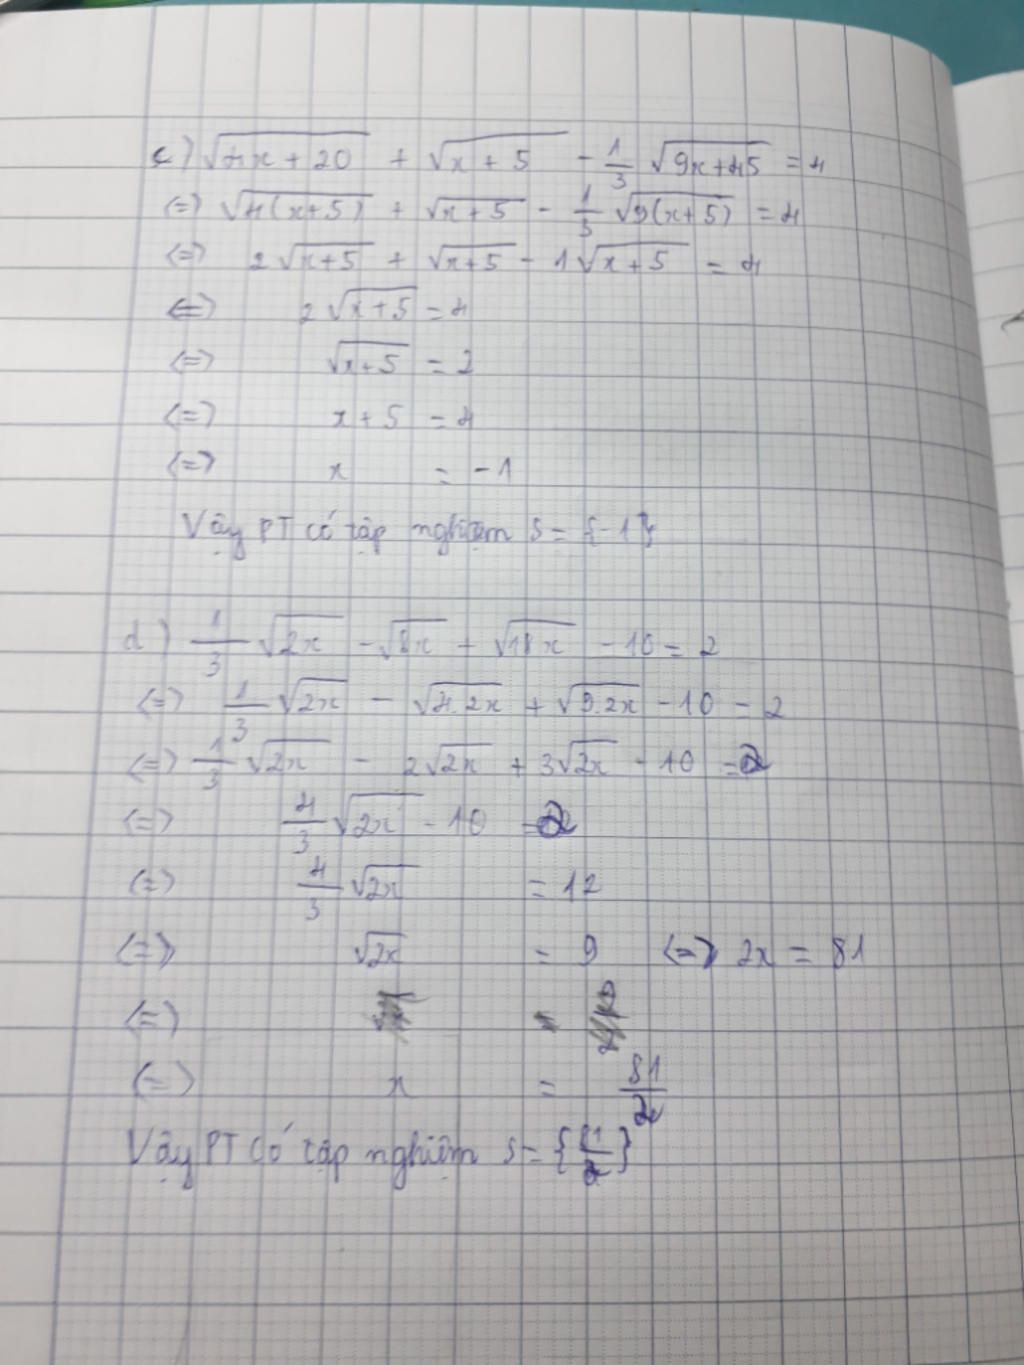 c) √(4x + 20) + √(x + 5) - 1/3 √(9x+45) = 4
<=> √(4(x+5)) + √(x+5) - 1/3 √(9(x+5)) = 4
<=> 2√(x+5) + √(x+5) - 1√(x+5) = 4
<=> 2√(x+5) = 4
<=> √(x+5) = 2
<=> x + 5 = 4
<=> x = -1
Vậy PT có tập nghiệm S = {-1}
d) 1/3 √(2x) - √(8x) + √(18x) - 10 = 2
<=> 1/3 √(2x) - √(4.2x) + √(9.2x) - 10 = 2
<=> 1/3 √(2x) - 2√(2x) + 3√(2x) - 10 = 2
<=> 4/3 √(2x) - 10 = 2
<=> 4/3 √(2x) = 12
<=> √(2x) = 9 <=> 2x = 81
<=>
<=> x = 81/2
Vậy PT có tập nghiệm S = {81/2}